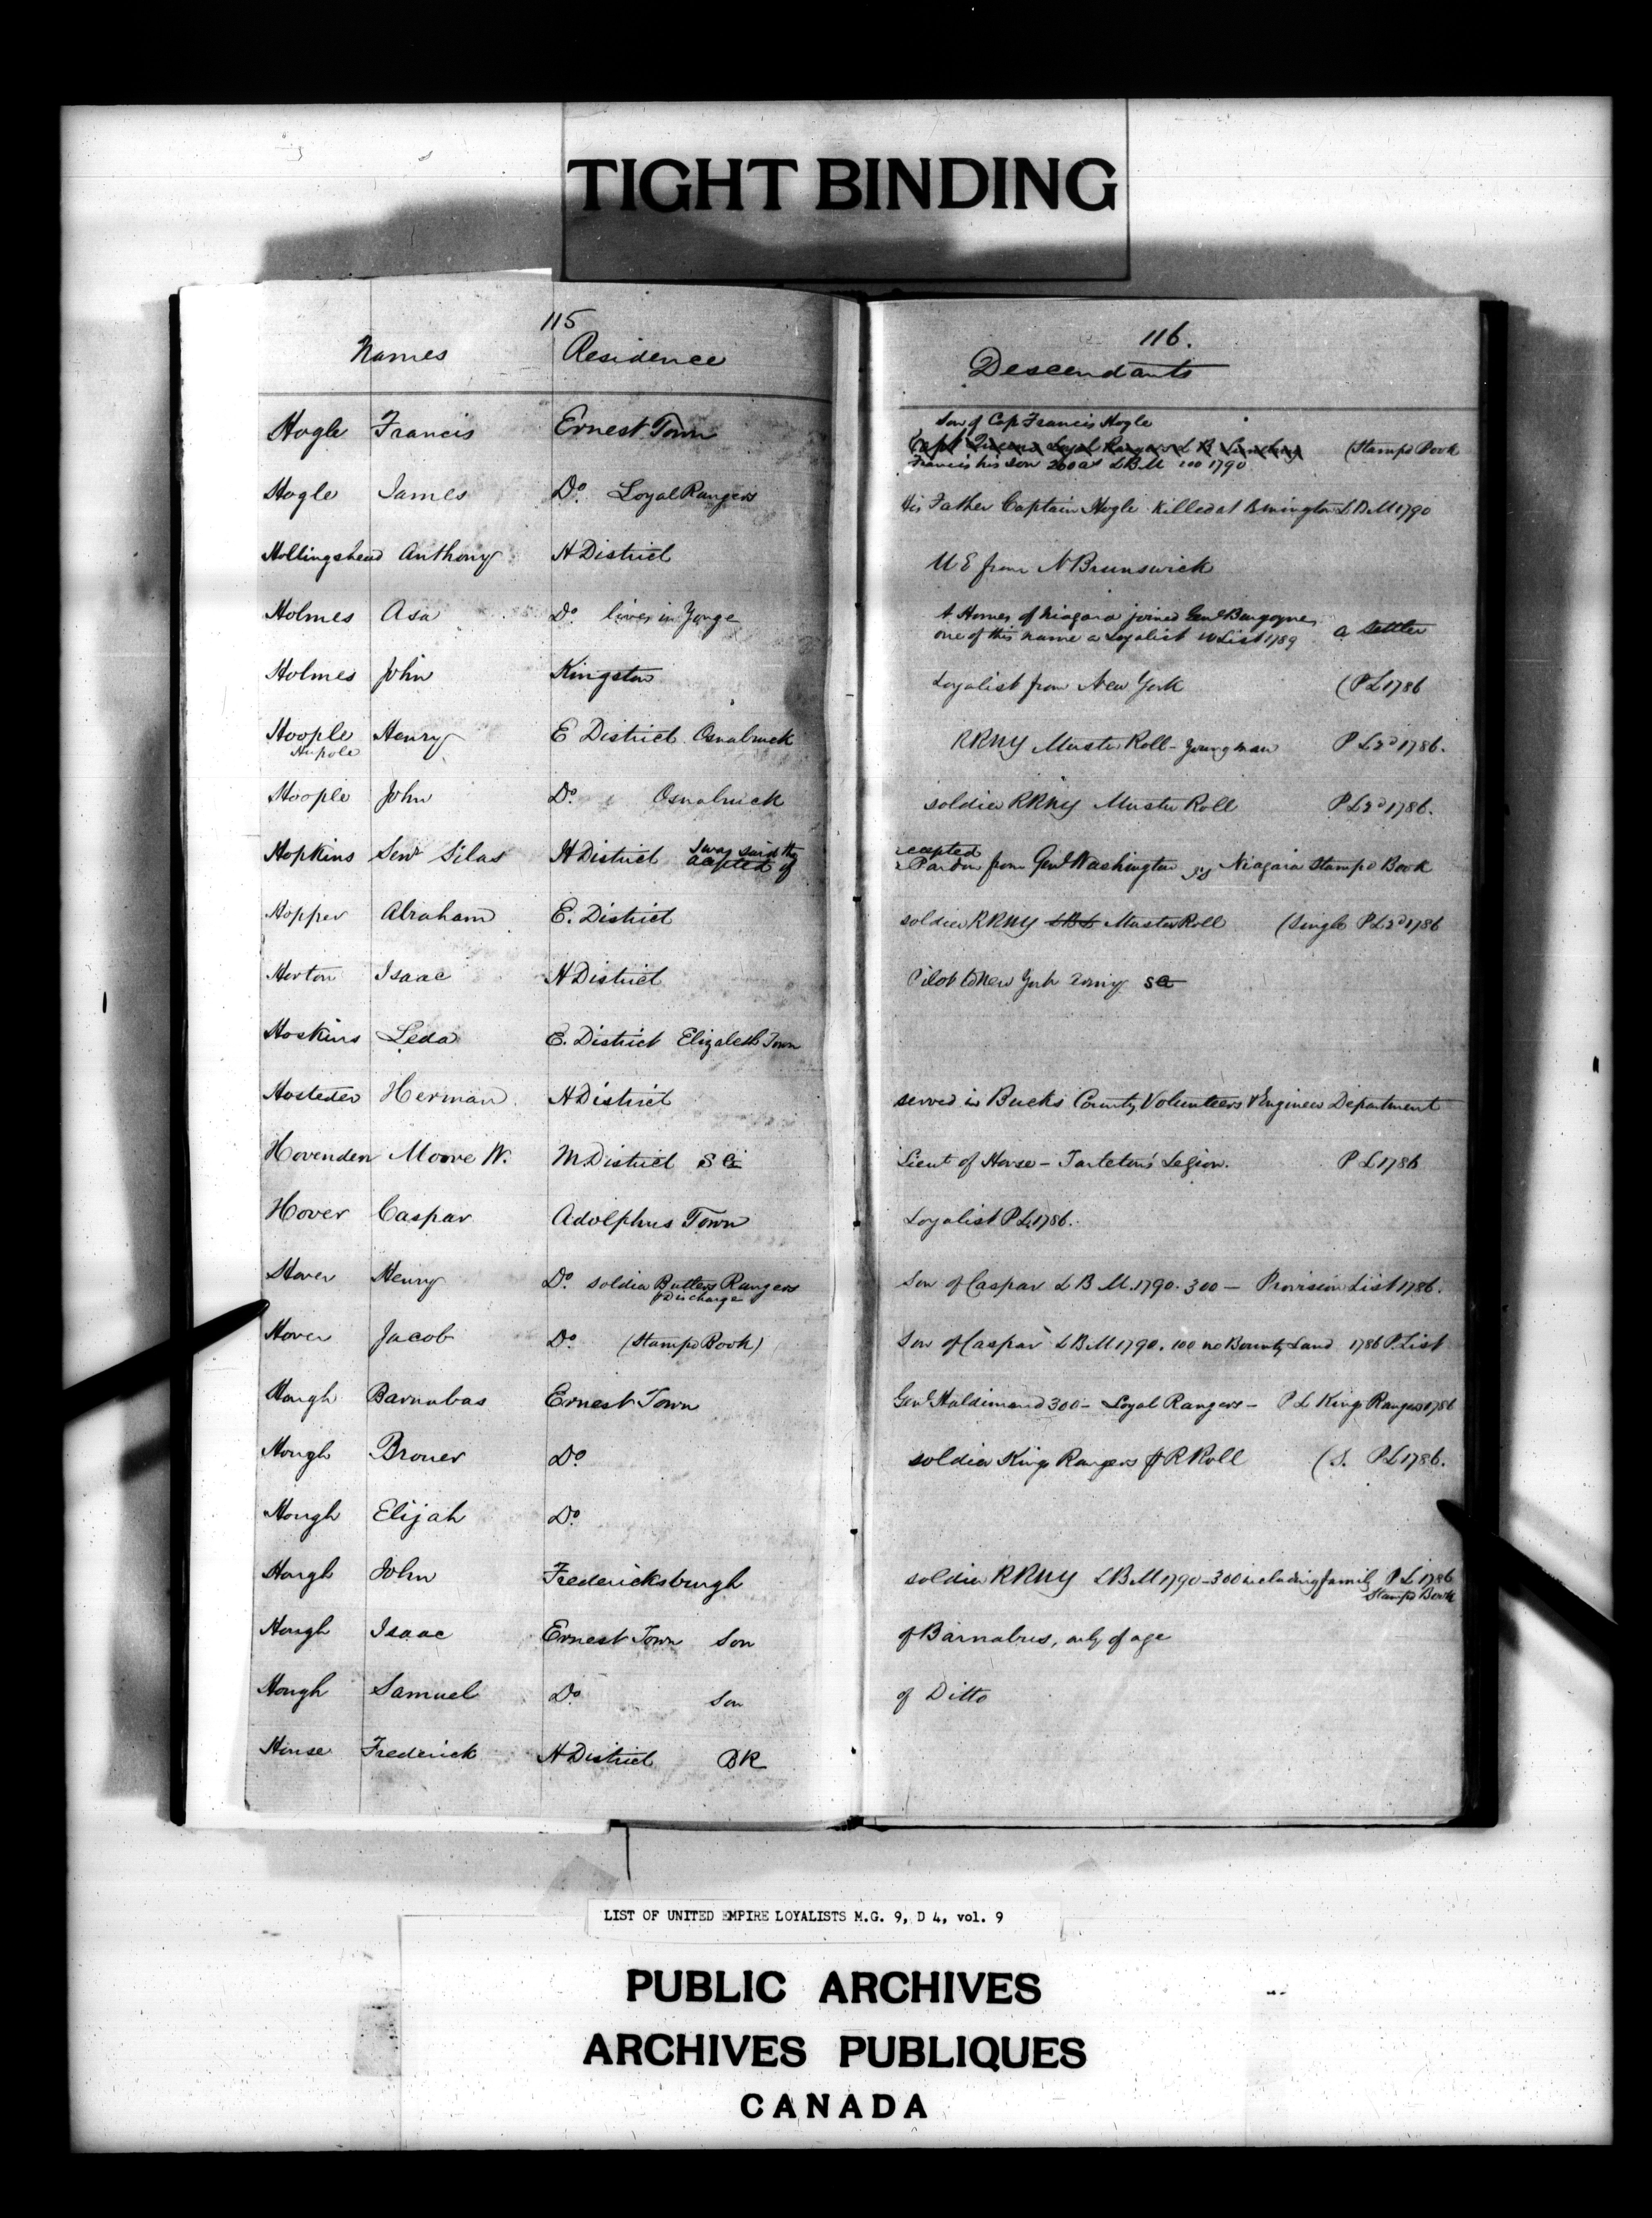 TIGHT BINDING
115
Names Residence
116.
Descendants
Hogle Francis Ernest Town
Son of Cap Francis Hogle
Capt Queens Loyal Rangers L B (Stampd Book
Francis his son 200 as LBM 100 1790
Hogle James Do. Loyal Rangers His Father Captain Hogle Killed at Bennington LBM 1790
Hollingshead Anthony H District U E from N Brunswick
Holmes Asa Do. lives in Yonge A. Homes of Niagara joined Genl Burgoyne,
one of this name a Loyalist List 1789 a settler
Holmes John Kingston Loyalist from New York (P L 1786
Hoople Henry E District Osnabruck RRNY Muster Roll - Young man P L 2d 1786.
Hupole
Hoople John Do. Osnabruck soldier RRNY Muster Roll P L 2d 1786.
Hopkins Senr Silas H District I was said thy
acepted of
acepted
Pardon from Genl Washington Niagara Stampd Book
Hopper Abraham E. District soldier RRNY LBL Muster Roll (Single P L 2d 1786
Horton Isaac H District Pilot to New York SG
Hoskins Leda E. District Elizabeth Town
Hosteder Herman H District served in Bucks County Volunteers & Engineer Department
Hovenden Moore W. M. District SG Lieut of Horse - Tarleton's Legion. P L 1786
Hover Caspar Adolphus Town Loyalist P L 1786.
Hover Henry Do. soldier Butlers Rangers Son of Caspar L B M. 1790. 300 - Provision List 1786.
Discharge
Hover Jacob Do. (Stampd Book) Son of Caspar LBM 1790. 100 no Bounty Land 1786 P List
Hough Barnabas Ernest Town Genl Haldimand 300 - Loyal Rangers - P L Kings Rangers 1786
Hough Broner Do soldier Kings Rangers R Roll (S. P L 1786.
Hough Elijah Do.
Hough John Fredericksburgh soldier RRNY LBM 1790 - 300 including family P L 1786
Stampd Book
Hough Isaac Ernest Town Son of Barnabus, only of age
Hough Samuel Do. Son of Ditto
House Frederick H District BR
LIST OF UNITED EMPIRE LOYALISTS M.G. 9, D 4, vol. 9
PUBLIC ARCHIVES
ARCHIVES PUBLIQUES
CANADA